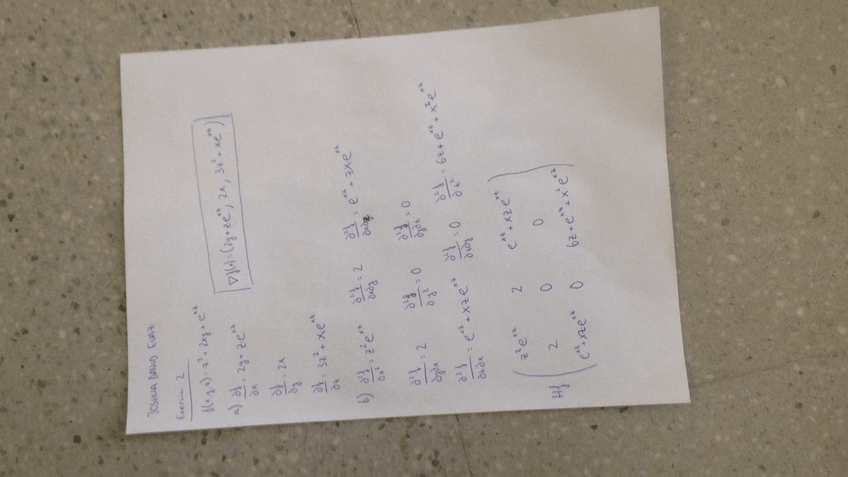 JOSHUA DAVID
Exercise 2
f(x,y,z) = z³ + 2xy + e^xz
a) ∂f/∂x = 2y + ze^xz
∇f(x) = (2y + ze^xz, 2x, 3z² + xe^xz)
∂f/∂y = 2x
∂f/∂z = 3z² + xe^xz
b) ∂²f/∂x² = z²e^xz ∂²f/∂x∂y = 2 ∂²f/∂x∂z = e^xz + zxe^xz
∂²f/∂y∂x = 2 ∂²f/∂y² = 0 ∂²f/∂y∂z = 0
∂²f/∂z∂x = e^xz + xze^xz ∂²f/∂z∂y = 0 ∂²f/∂z² = 6z + e^xz + x²e^xz
z²e^xz 2 e^xz + xze^xz
Hf 2 0 0
e^xz + xze^xz 0 6z + e^xz + x²e^xz